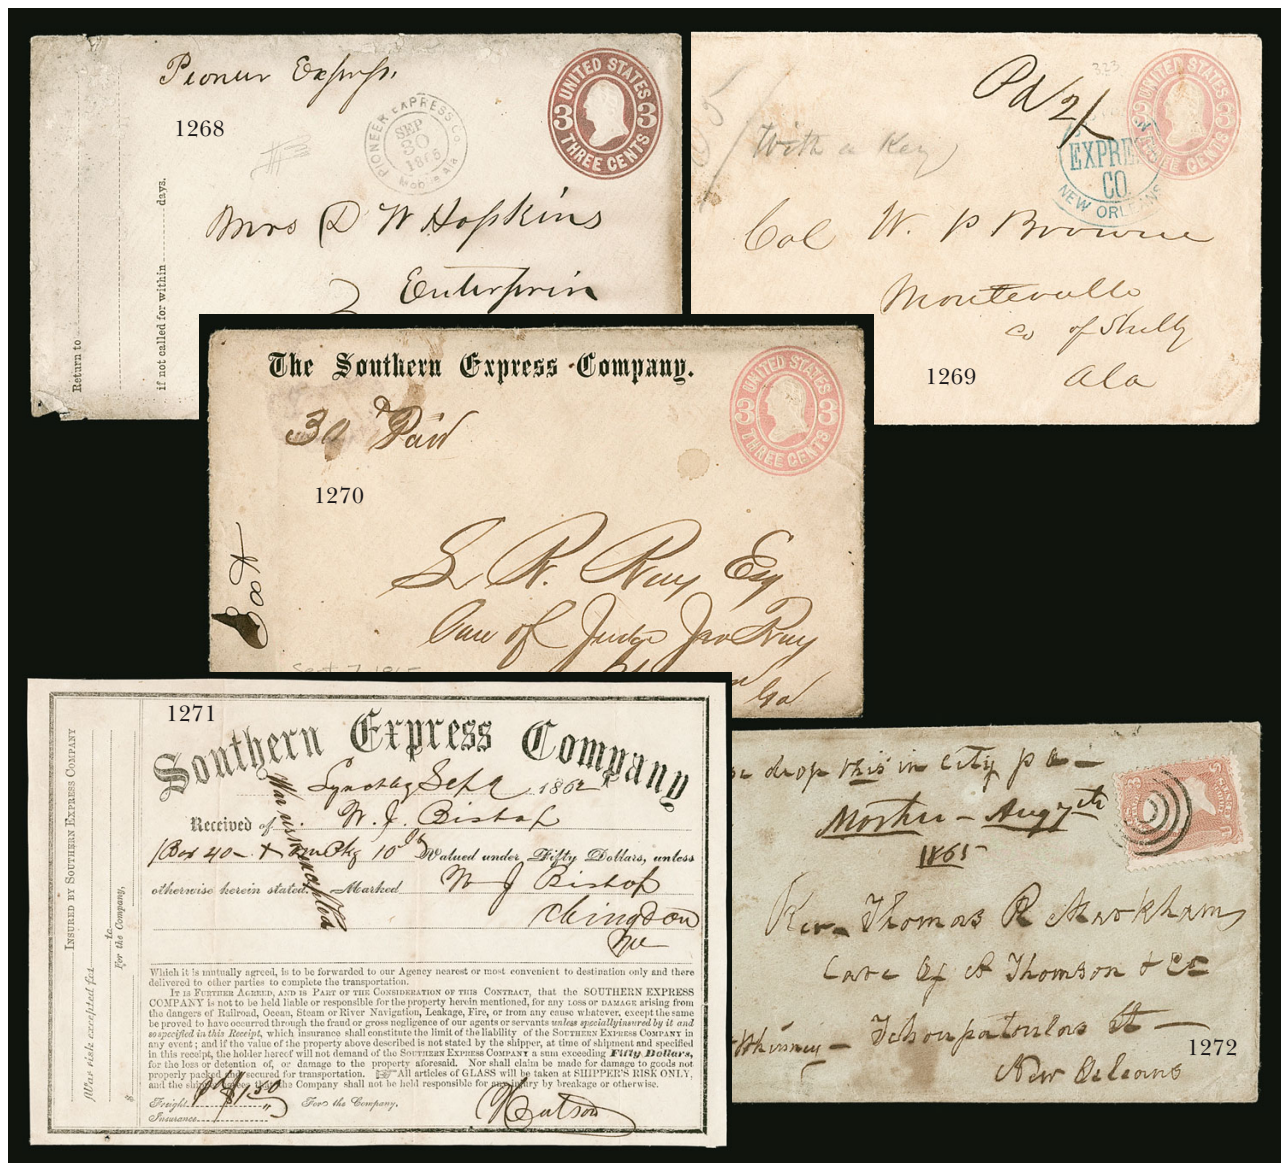 Pioneer Express.
1268
PIONEER EXPRESS Co
SEP
30
1865
Mobile Ala
UNITED STATES
3 3
THREE CENTS
#3
Mrs D W Hopkins
Enterprise
Return to
if not called for within days.
323
Pd 2/
UNITED STATES
3 3
THREE CENTS
With a Key
EXPRE
CO.
NEW ORLEANS
Col W. P Browne
Montevallo
co of Shelby
1269
Ala
The Southern Express Company.
UNITED STATES
3 3
THREE CENTS
30 Paid
1270
S. R. Ray Esq
Care of Judge Jno Ray
Ga
Sept 7, 1865
1271
Southern Express Company
INSURED BY SOUTHERN EXPRESS COMPANY
War risk excepted for
to
For the Company,
$
Lynchbg Sept 1862
War risk excepted
Received of W. J. Bishop
1 Box 40 + Pkg 10 Valued under Fifty Dollars, unless
otherwise herein stated. Marked W J Bishop
Abingdon
Which it is mutually agreed, is to be forwarded to our Agency nearest or most convenient to destination only and there
delivered to other parties to complete the transportation.
IT IS FURTHER AGREED, AND IS PART OF THE CONSIDERATION OF THIS CONTRACT, that the SOUTHERN EXPRESS
COMPANY is not to be held liable or responsible for the property herein mentioned, for any LOSS OR DAMAGE arising from
the dangers of Railroad, Ocean, Steam or River Navigation, Leakage, Fire, or from any cause whatever, except the same
be proved to have occurred through the fraud or gross negligence of our agents or servants unless specially insured by it and
so specified in this Receipt, which insurance shall constitute the limit of the liability of the SOUTHERN EXPRESS COMPANY in
any event; and if the value of the property above described is not stated by the shipper, at time of shipment and specified
in this receipt, the holder hereof will not demand of the SOUTHERN EXPRESS COMPANY a sum exceeding Fifty Dollars,
for the loss or detention of, or damage to the property aforesaid. Nor shall claim be made for damage to goods not
properly packed and secured for transportation. All articles of GLASS will be taken at SHIPPER'S RISK ONLY,
and the shipper agrees that the Company shall not be held responsible for any injury by breakage or otherwise.
Freight $1.50 For the Company,
Insurance
Watson
drop this in city p o
Augt 7th
1865
Rev. Thomas R Markham
Care of A Thomson & Co
Tchoupatoulas St
1272
New Orleans